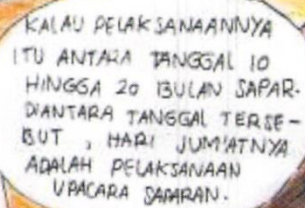 KALAU PELAKSANAANNYA
ITU ANTARA TANGGAL 10
HINGGA 20 BULAN SAPAR.
DIANTARA TANGGAL TERSE-
BUT , HARI JUM'ATNYA
ADALAH PELAKSANAAN
UPACARA SAPARAN.